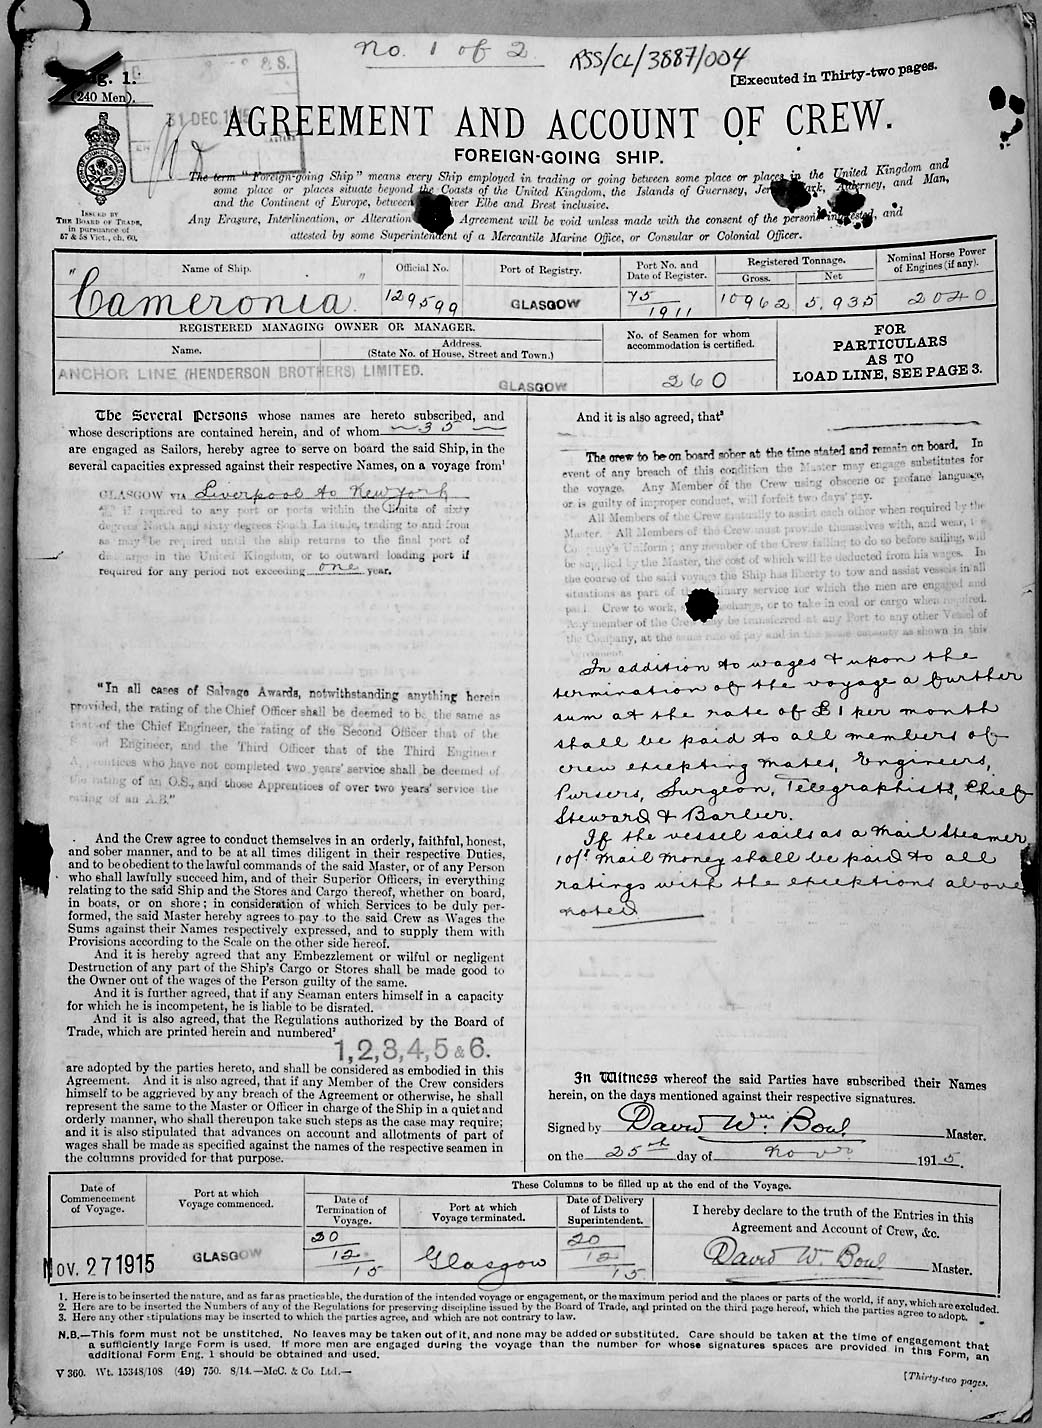 No. 1 of 2
RSS/CL/3887/004
[Executed in Thirty-two pages.
g. 1.
(240 Men).
31 DEC 1915
AGREEMENT AND ACCOUNT OF CREW.
FOREIGN-GOING SHIP.
ISSUED BY
THE BOARD OF TRADE,
in pursuance of
57 & 58 Vict., ch. 60.
The term "Foreign-going Ship" means every Ship employed in trading or going between some place or places in the United Kingdom and
some place or places situate beyond the Coasts of the United Kingdom, the Islands of Guernsey, Jersey, Sark, Alderney, and Man,
and the Continent of Europe, between the River Elbe and Brest inclusive.
Any Erasure, Interlineation, or Alteration Agreement will be void unless made with the consent of the persons interested, and
attested by some Superintendent of a Mercantile Marine Office, or Consular or Colonial Officer.
Name of Ship.
Official No.
Port of Registry.
Port No. and
Date of Register.
Registered Tonnage.
Gross.
Net
Nominal Horse Power
of Engines (if any).
"Cameronia"
129599
GLASGOW
75
1911
10962
5,935
2040
REGISTERED MANAGING OWNER OR MANAGER.
Name.
Address.
(State No. of House, Street and Town.)
No. of Seamen for whom
accommodation is certified.
FOR
PARTICULARS
AS TO
LOAD LINE, SEE PAGE 3.
ANCHOR LINE (HENDERSON BROTHERS) LIMITED.
GLASGOW
260
The Several Persons whose names are hereto subscribed, and
whose descriptions are contained herein, and of whom 35
are engaged as Sailors, hereby agree to serve on board the said Ship, in the
several capacities expressed against their respective Names, on a voyage from¹
GLASGOW VIA Liverpool to New York
if required to any port or ports within the limits of sixty
degrees North and sixty degrees South Latitude, trading to and from
as may be required until the ship returns to the final port of
discharge in the United Kingdom, or to outward loading port if
required for any period not exceeding one year.
"In all cases of Salvage Awards, notwithstanding anything herein
provided, the rating of the Chief Officer shall be deemed to be the same as
that of the Chief Engineer, the rating of the Second Officer that of the
Second Engineer, and the Third Officer that of the Third Engineer
Apprentices who have not completed two years' service shall be deemed of
the rating of an O.S., and those Apprentices of over two years' service the
rating of an A.B."
And the Crew agree to conduct themselves in an orderly, faithful, honest,
and sober manner, and to be at all times diligent in their respective Duties,
and to be obedient to the lawful commands of the said Master, or of any Person
who shall lawfully succeed him, and of their Superior Officers, in everything
relating to the said Ship and the Stores and Cargo thereof, whether on board,
in boats, or on shore; in consideration of which Services to be duly per-
formed, the said Master hereby agrees to pay to the said Crew as Wages the
Sums against their Names respectively expressed, and to supply them with
Provisions according to the Scale on the other side hereof.
And it is hereby agreed that any Embezzlement or wilful or negligent
Destruction of any part of the Ship's Cargo or Stores shall be made good to
the Owner out of the wages of the Person guilty of the same.
And it is further agreed, that if any Seaman enters himself in a capacity
for which he is incompetent, he is liable to be disrated.
And it is also agreed, that the Regulations authorized by the Board of
Trade, which are printed herein and numbered²
1, 2, 3, 4, 5 & 6.
are adopted by the parties hereto, and shall be considered as embodied in this
Agreement. And it is also agreed, that if any Member of the Crew considers
himself to be aggrieved by any breach of the Agreement or otherwise, he shall
represent the same to the Master or Officer in charge of the Ship in a quiet and
orderly manner, who shall thereupon take such steps as the case may require;
and it is also stipulated that advances on account and allotments of part of
wages shall be made as specified against the names of the respective seamen in
the columns provided for that purpose.
And it is also agreed, that³
The crew to be on board sober at the time stated and remain on board. In
event of any breach of this condition the Master may engage substitutes for
the voyage. Any Member of the Crew using obscene or profane language,
or is guilty of improper conduct, will forfeit two days' pay.
All Members of the Crew mutually to assist each other when required by the
Master. All Members of the Crew must provide themselves with, and wear,
Company's Uniform; any member of the Crew failing to do so before sailing, will
be supplied by the Master, the cost of which will be deducted from his wages. In
the course of the said voyage the Ship has liberty to tow and assist vessels in all
situations as part of the ordinary service for which the men are engaged and
paid. Crew to work, discharge, or to take in coal or cargo when required.
Any member of the Crew may be transferred at any Port to any other Vessel of
the Company, at the same rate of pay and in the same capacity as shown in this
Agreement.
In addition to wages & upon the
termination of the voyage a further
sum at the rate of £1 per month
shall be paid to all members of
crew excepting Mates, Engineers,
Pursers, Surgeon, Telegraphists, Chief
Steward & Barber.
If the vessel sails as a Mail Steamer
10/- Mail Money shall be paid to all
ratings with the exceptions above
noted
In Witness whereof the said Parties have subscribed their Names
herein, on the days mentioned against their respective signatures.
Signed by David Wm. Bowl Master.
on the 25th day of Novr 1915.
Date of
Commencement
of Voyage.
Port at which
Voyage commenced.
These Columns to be filled up at the end of the Voyage.
Date of
Termination of
Voyage.
Port at which
Voyage terminated.
Date of Delivery
of Lists to
Superintendent.
I hereby declare to the truth of the Entries in this
Agreement and Account of Crew, &c.
Nov. 27 1915
GLASGOW
30
12
15
Glasgow
30
12
15
David W. Bowl Master.
1. Here is to be inserted the nature, and as far as practicable, the duration of the intended voyage or engagement, or the maximum period and the places or parts of the world, if any, which are excluded.
2. Here are to be inserted the Numbers of any of the Regulations for preserving discipline issued by the Board of Trade, and printed on the third page hereof, which the parties agree to adopt.
3. Here any other stipulations may be inserted to which the parties agree, and which are not contrary to law.
N.B.—This form must not be unstitched. No leaves may be taken out of it, and none may be added or substituted. Care should be taken at the time of engagement that
a sufficiently large Form is used. If more men are engaged during the voyage than the number for whose signatures spaces are provided in this Form, an
additional Form Eng. 1 should be obtained and used.
V 360. Wt. 15348/108 (49) 750. 8/14.—McC. & Co. Ltd.—
[Thirty-two pages.